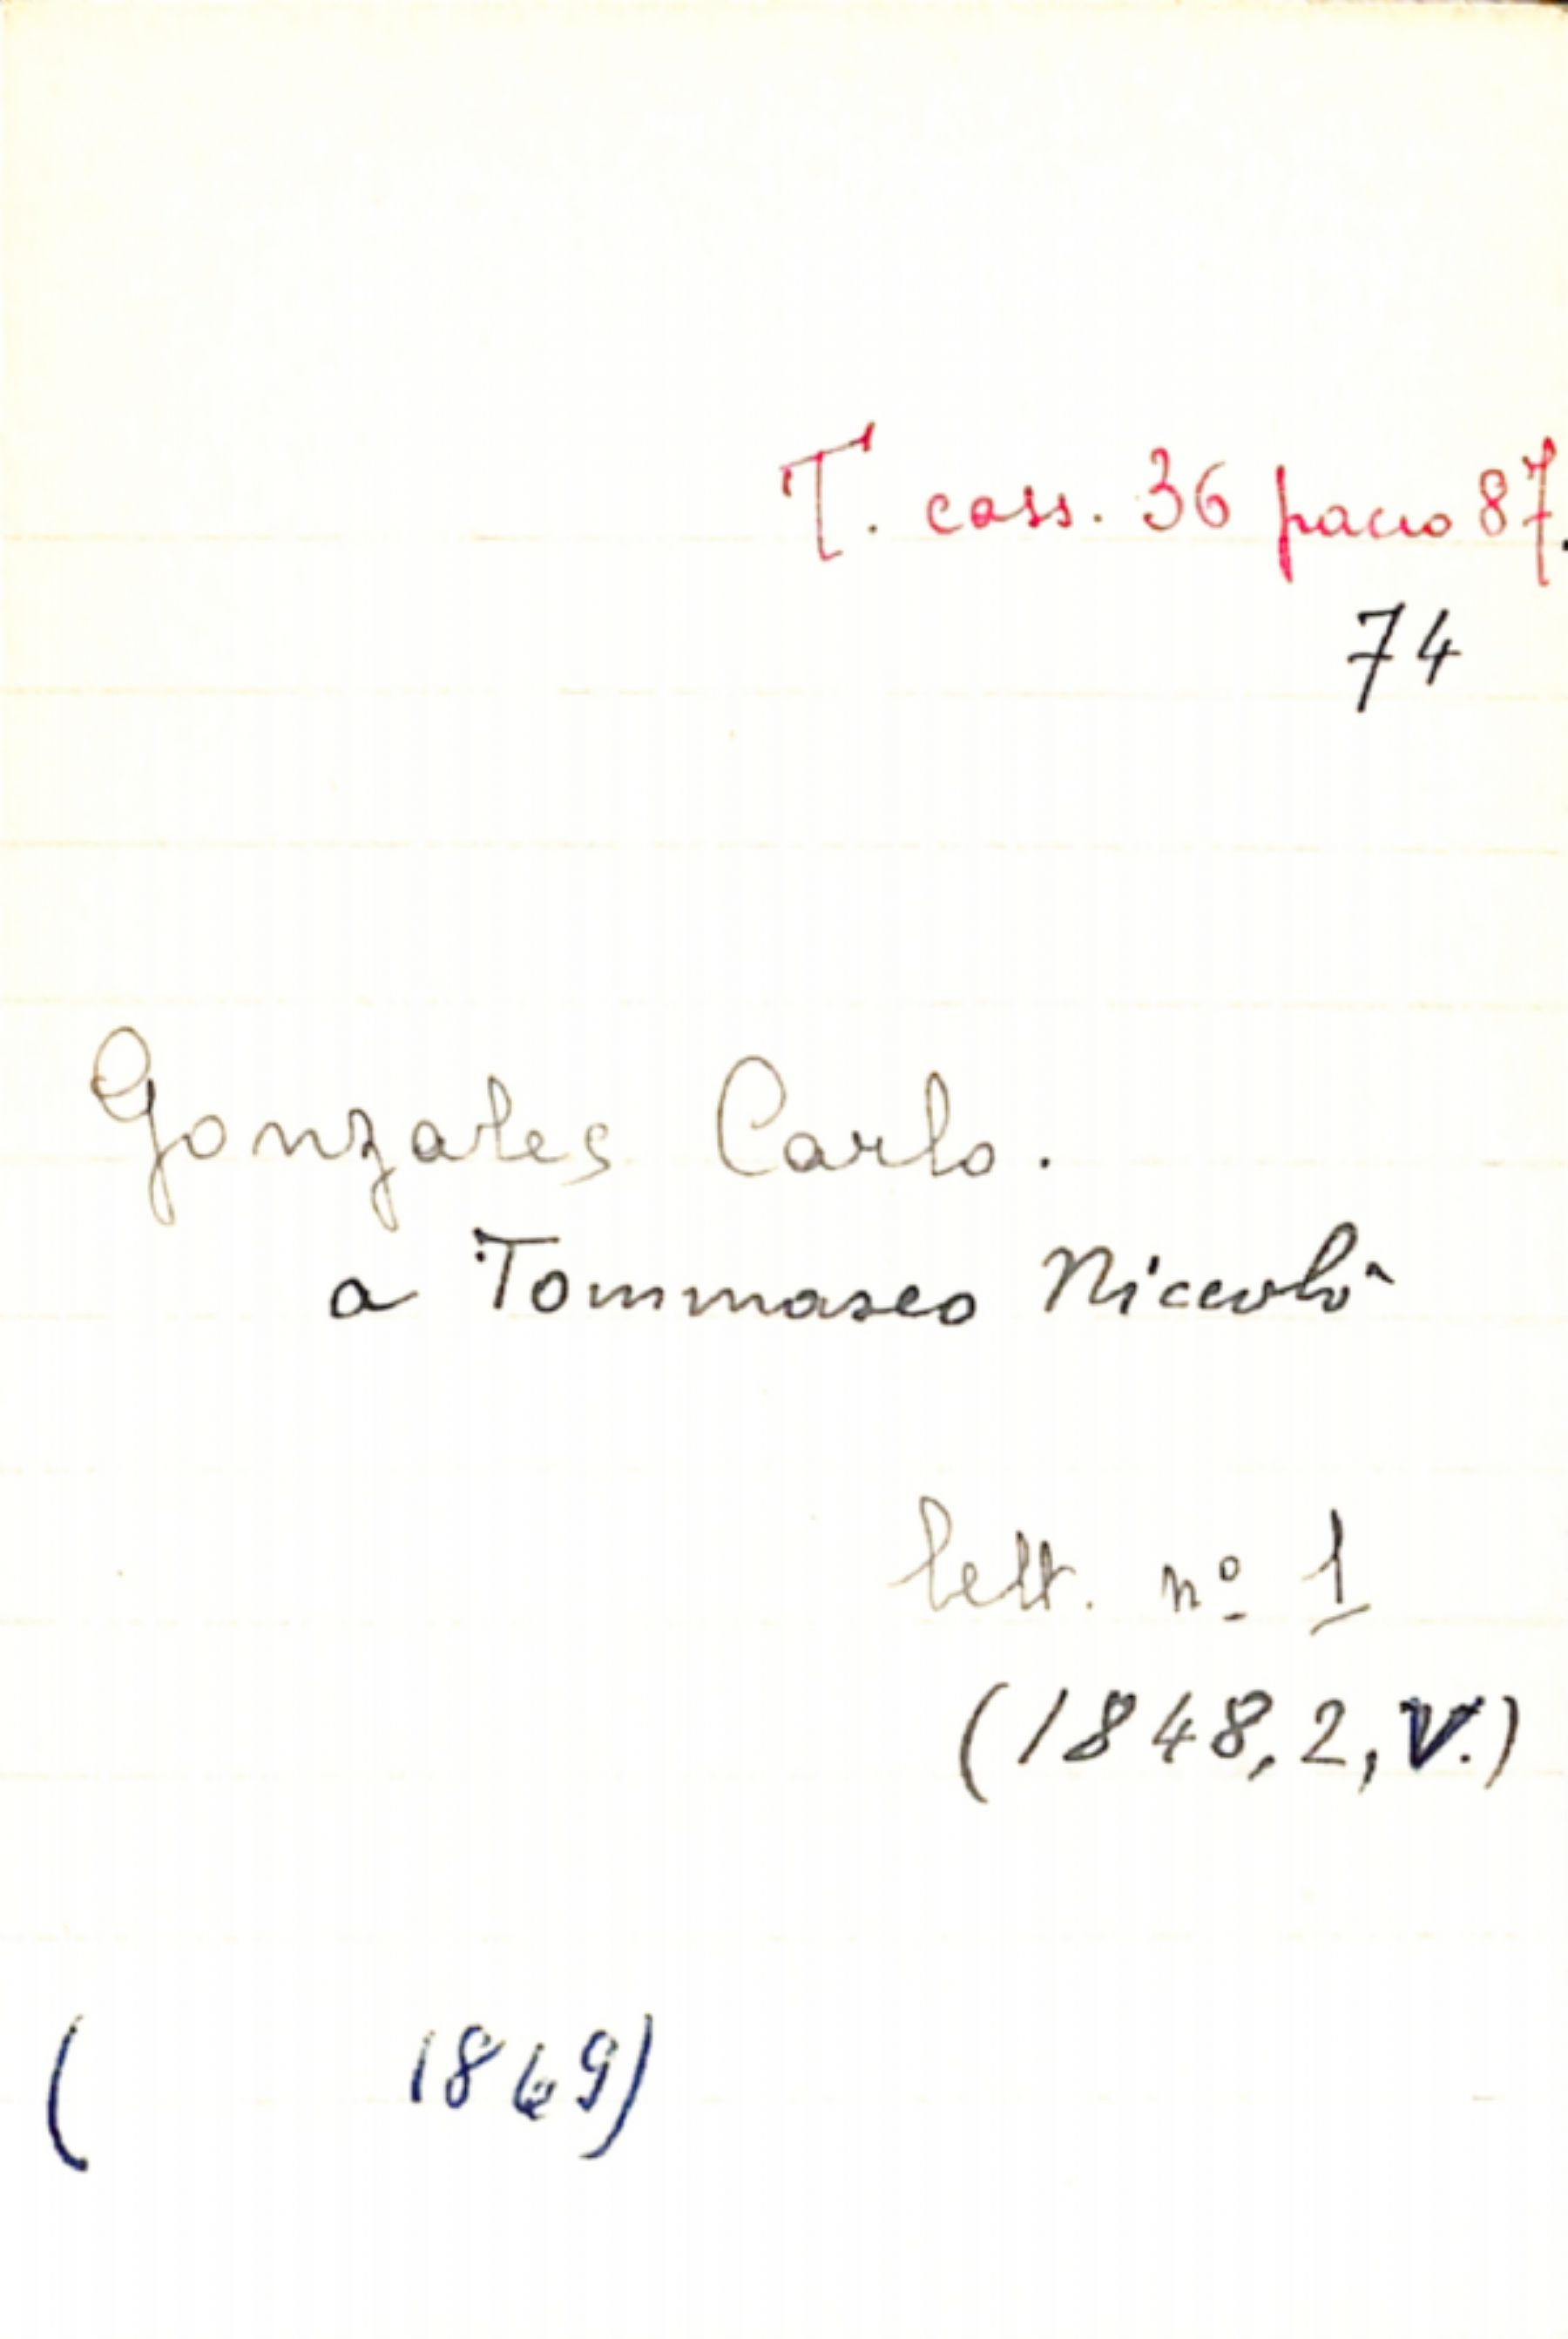 T. cass. 36 pacco 87.
74
Gonzales Carlo.
a Tommaseo Niccolò
lett. nº 1
(1848, 2, V.)
( 1849)